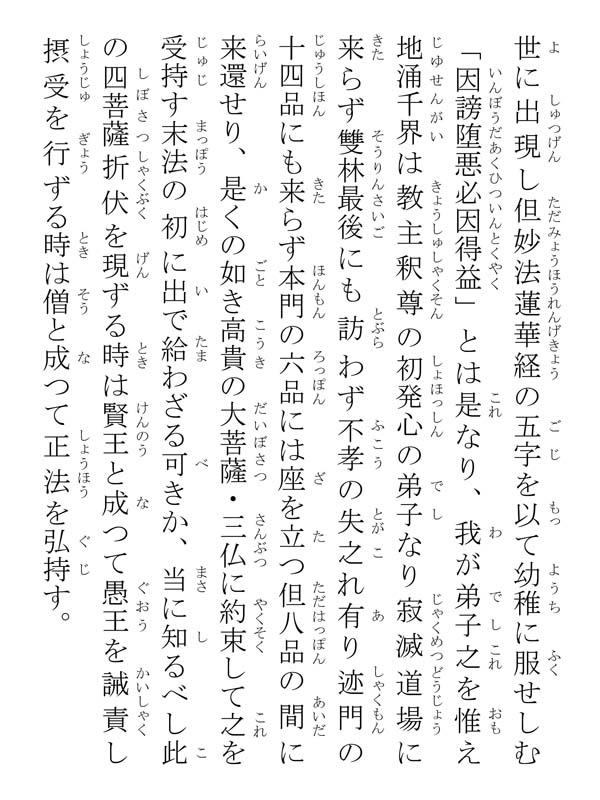 世に出現し但妙法蓮華経の五字を以て幼稚に服せしむ
「因謗堕悪必因得益」とは是なり、我が弟子之を惟え
地涌千界は教主釈尊の初発心の弟子なり寂滅道場に
来らず雙林最後にも訪わず不孝の失之れ有り迹門の
十四品にも来らず本門の六品には座を立つ但八品の間に
来還せり、是くの如き高貴の大菩薩・三仏に約束して之を
受持す末法の初に出で給わざる可きか、当に知るべし此
の四菩薩折伏を現ずる時は賢王と成つて愚王を誡責し
摂受を行ずる時は僧と成つて正法を弘持す。